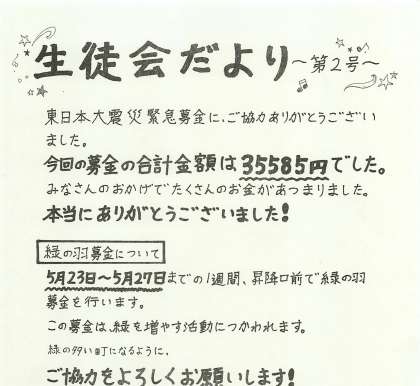 生徒会だより～第2号～
東日本大震災緊急募金に、ご協力ありがとうござい
ました。
今回の募金の合計金額は35585円でした。
みなさんのおかげでたくさんのお金があつまりました。
本当にありがとうございました!
緑の羽募金について
5月23日～5月27日までの1週間、昇降口前で緑の羽
募金を行います。
この募金は、緑を増やす活動につかわれます。
緑の多い町になるように、
ご協力をよろしくお願いします!